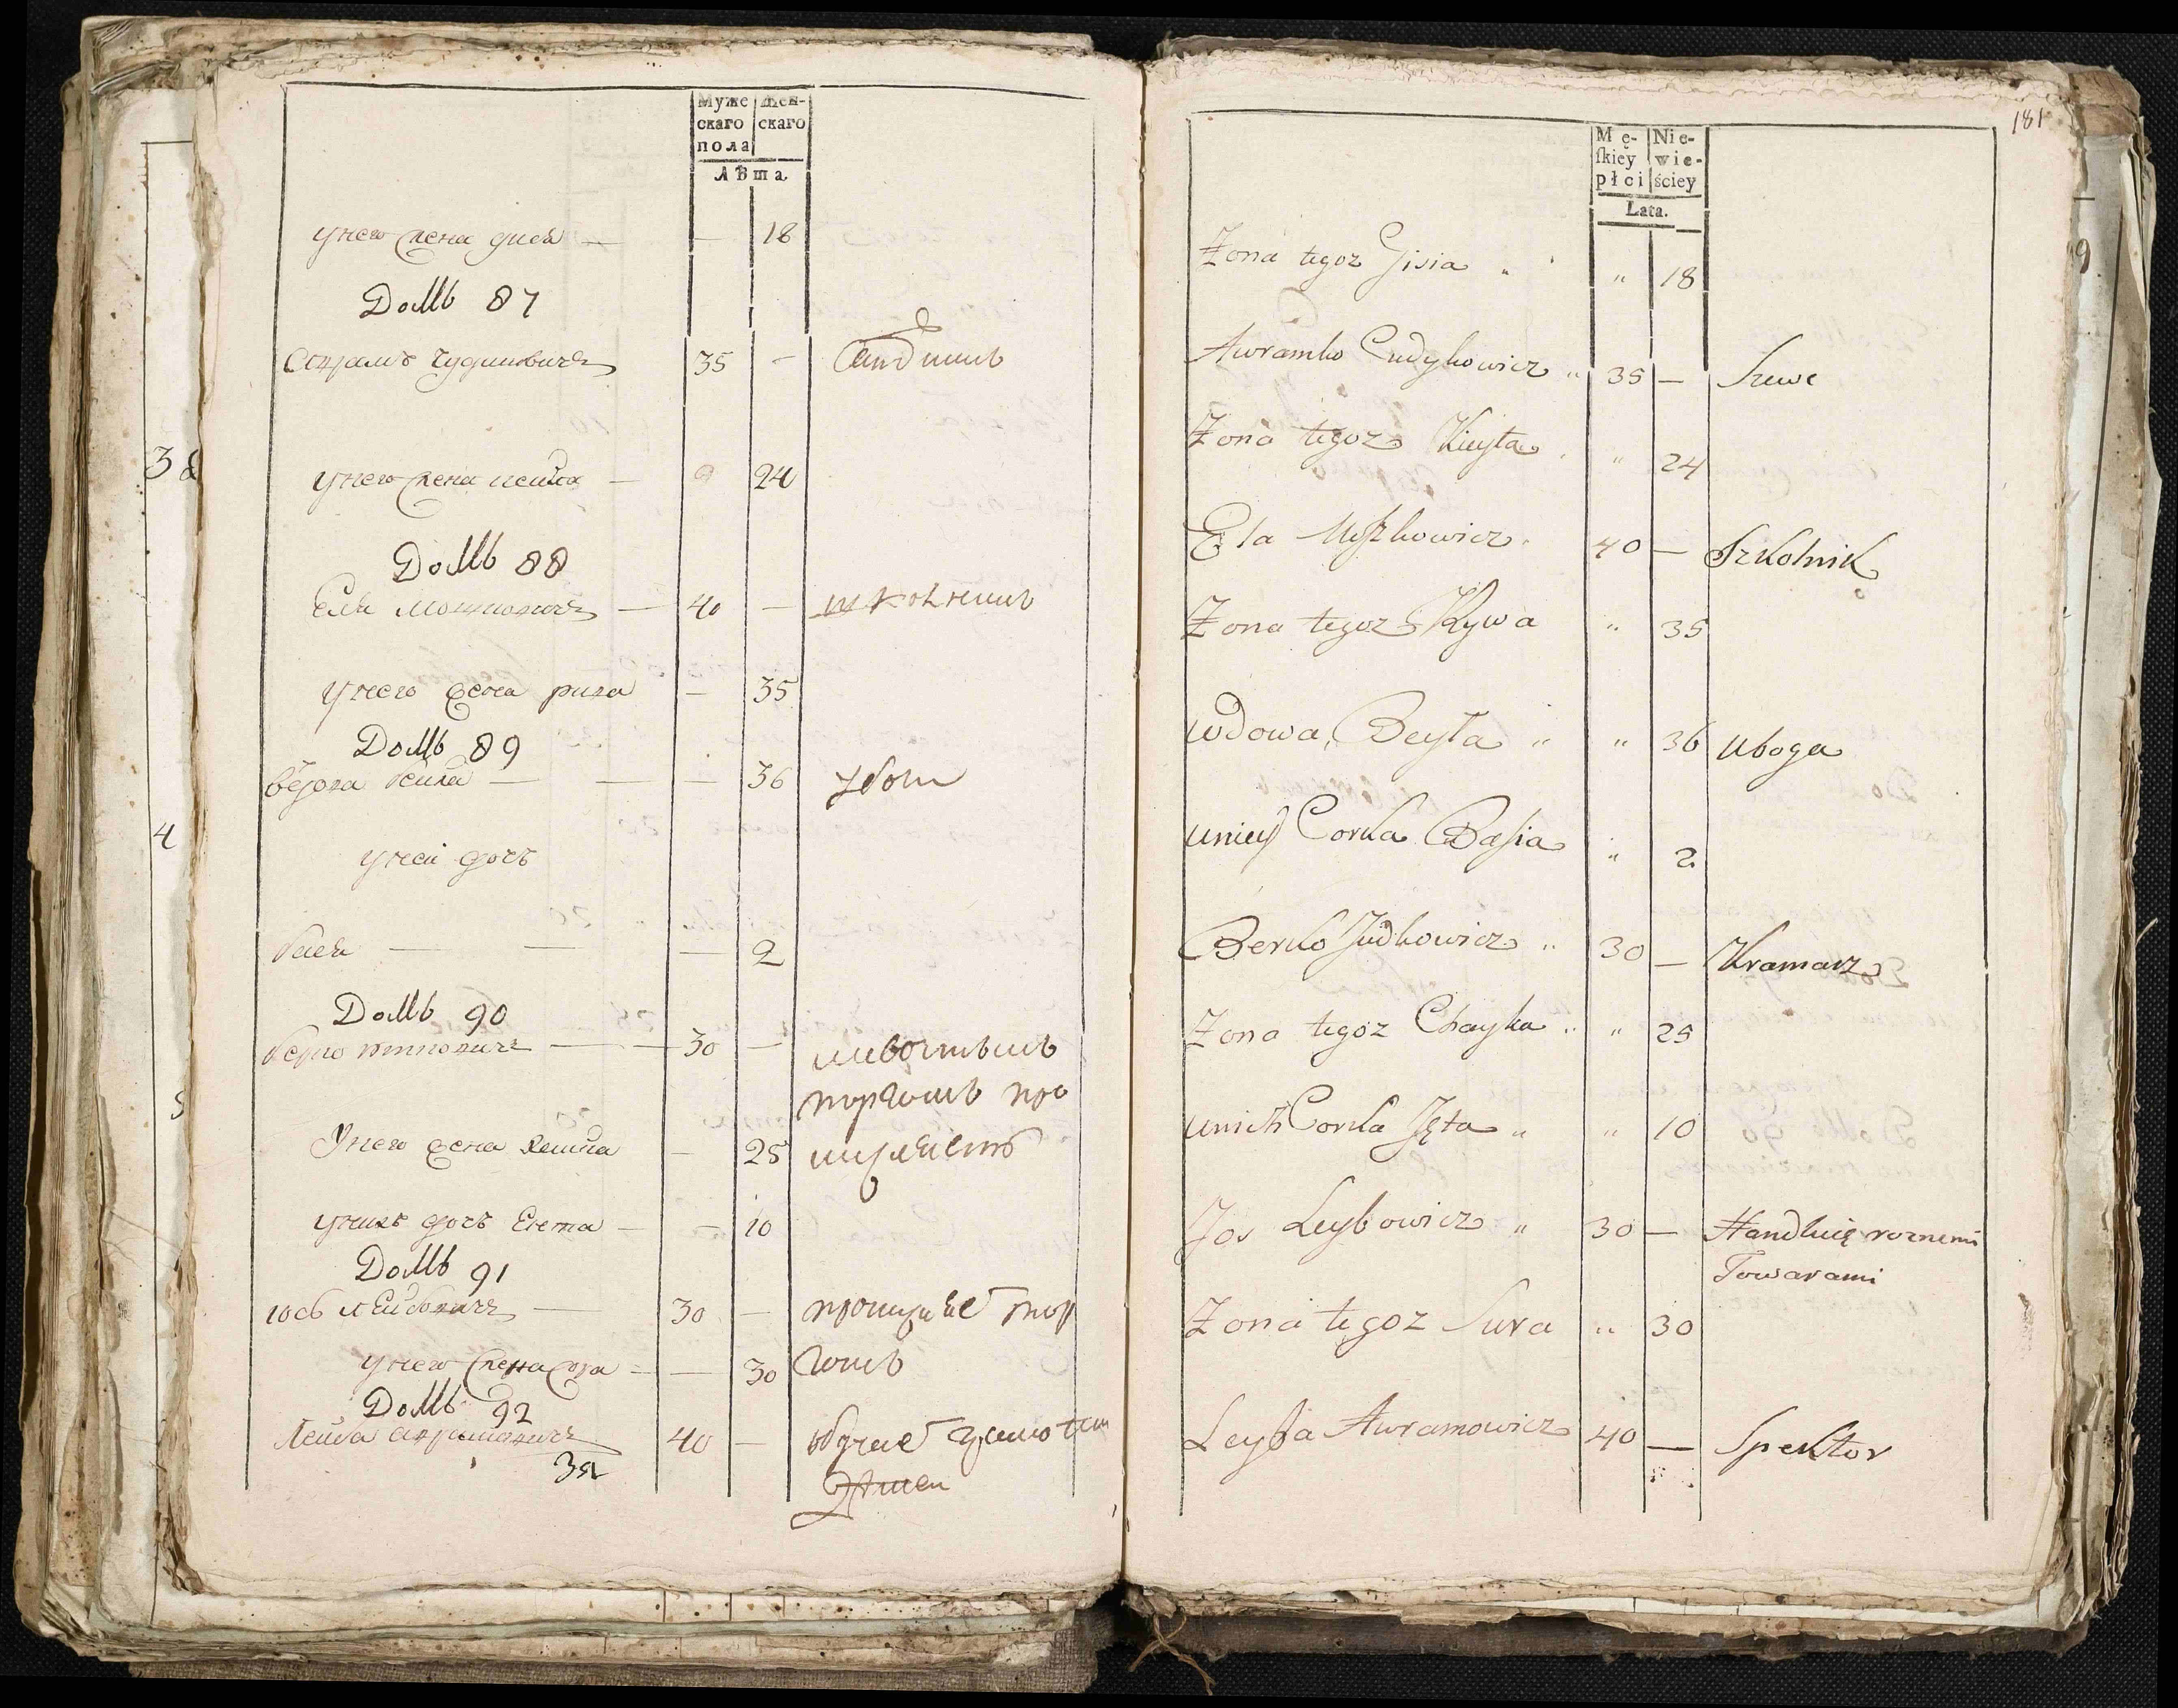 Муже
скаго
пола
Жен-
скаго
Лѣта
у него жена гися — — 18
Домъ 87
35 —
у него жена 24
Домъ 88
Еля Мошковичъ — 40 — школникъ
у него жена рива — 35
Домъ 89
вдова беила — — — 36 убога
у ней дочь
бася — — — 2
Домъ 90
берко — — 30 —
у него жена хаика — 25
у нихъ дочъ Ента — — 10
Домъ 91
Іось Леибовичъ — 30 — промышляе тор
у него жена сора — — 30 гомъ
Домъ 92
Леиба аврамовичъ 40 —
38
4
5
181
9
Mę-
ſkiey
płci
Nie-
wie-
ściey
Lata.
Zona tegoz Gisia „ „ 18
Awramko Cudykowicz „ 35 — Szewc
Zona tegoz Kieyła „ „ 24
Ela Moszkowicz „ 40 — Szkolnik
Zona tegoz Rywa „ 35
Wdowa Beyła „ „ 36 Uboga
u niey Corka Basia „ 2
Berko Judkowicz „ 30 — Kramarz
Zona tegoz Chayka „ „ 25
u nich Corka Jęta „ „ 10
Jos Leybowicz „ 30 — Handluię roznemi
Towarami
Zona tegoz Sura „ 30
Leyba Awramowicz 40 — Spektor